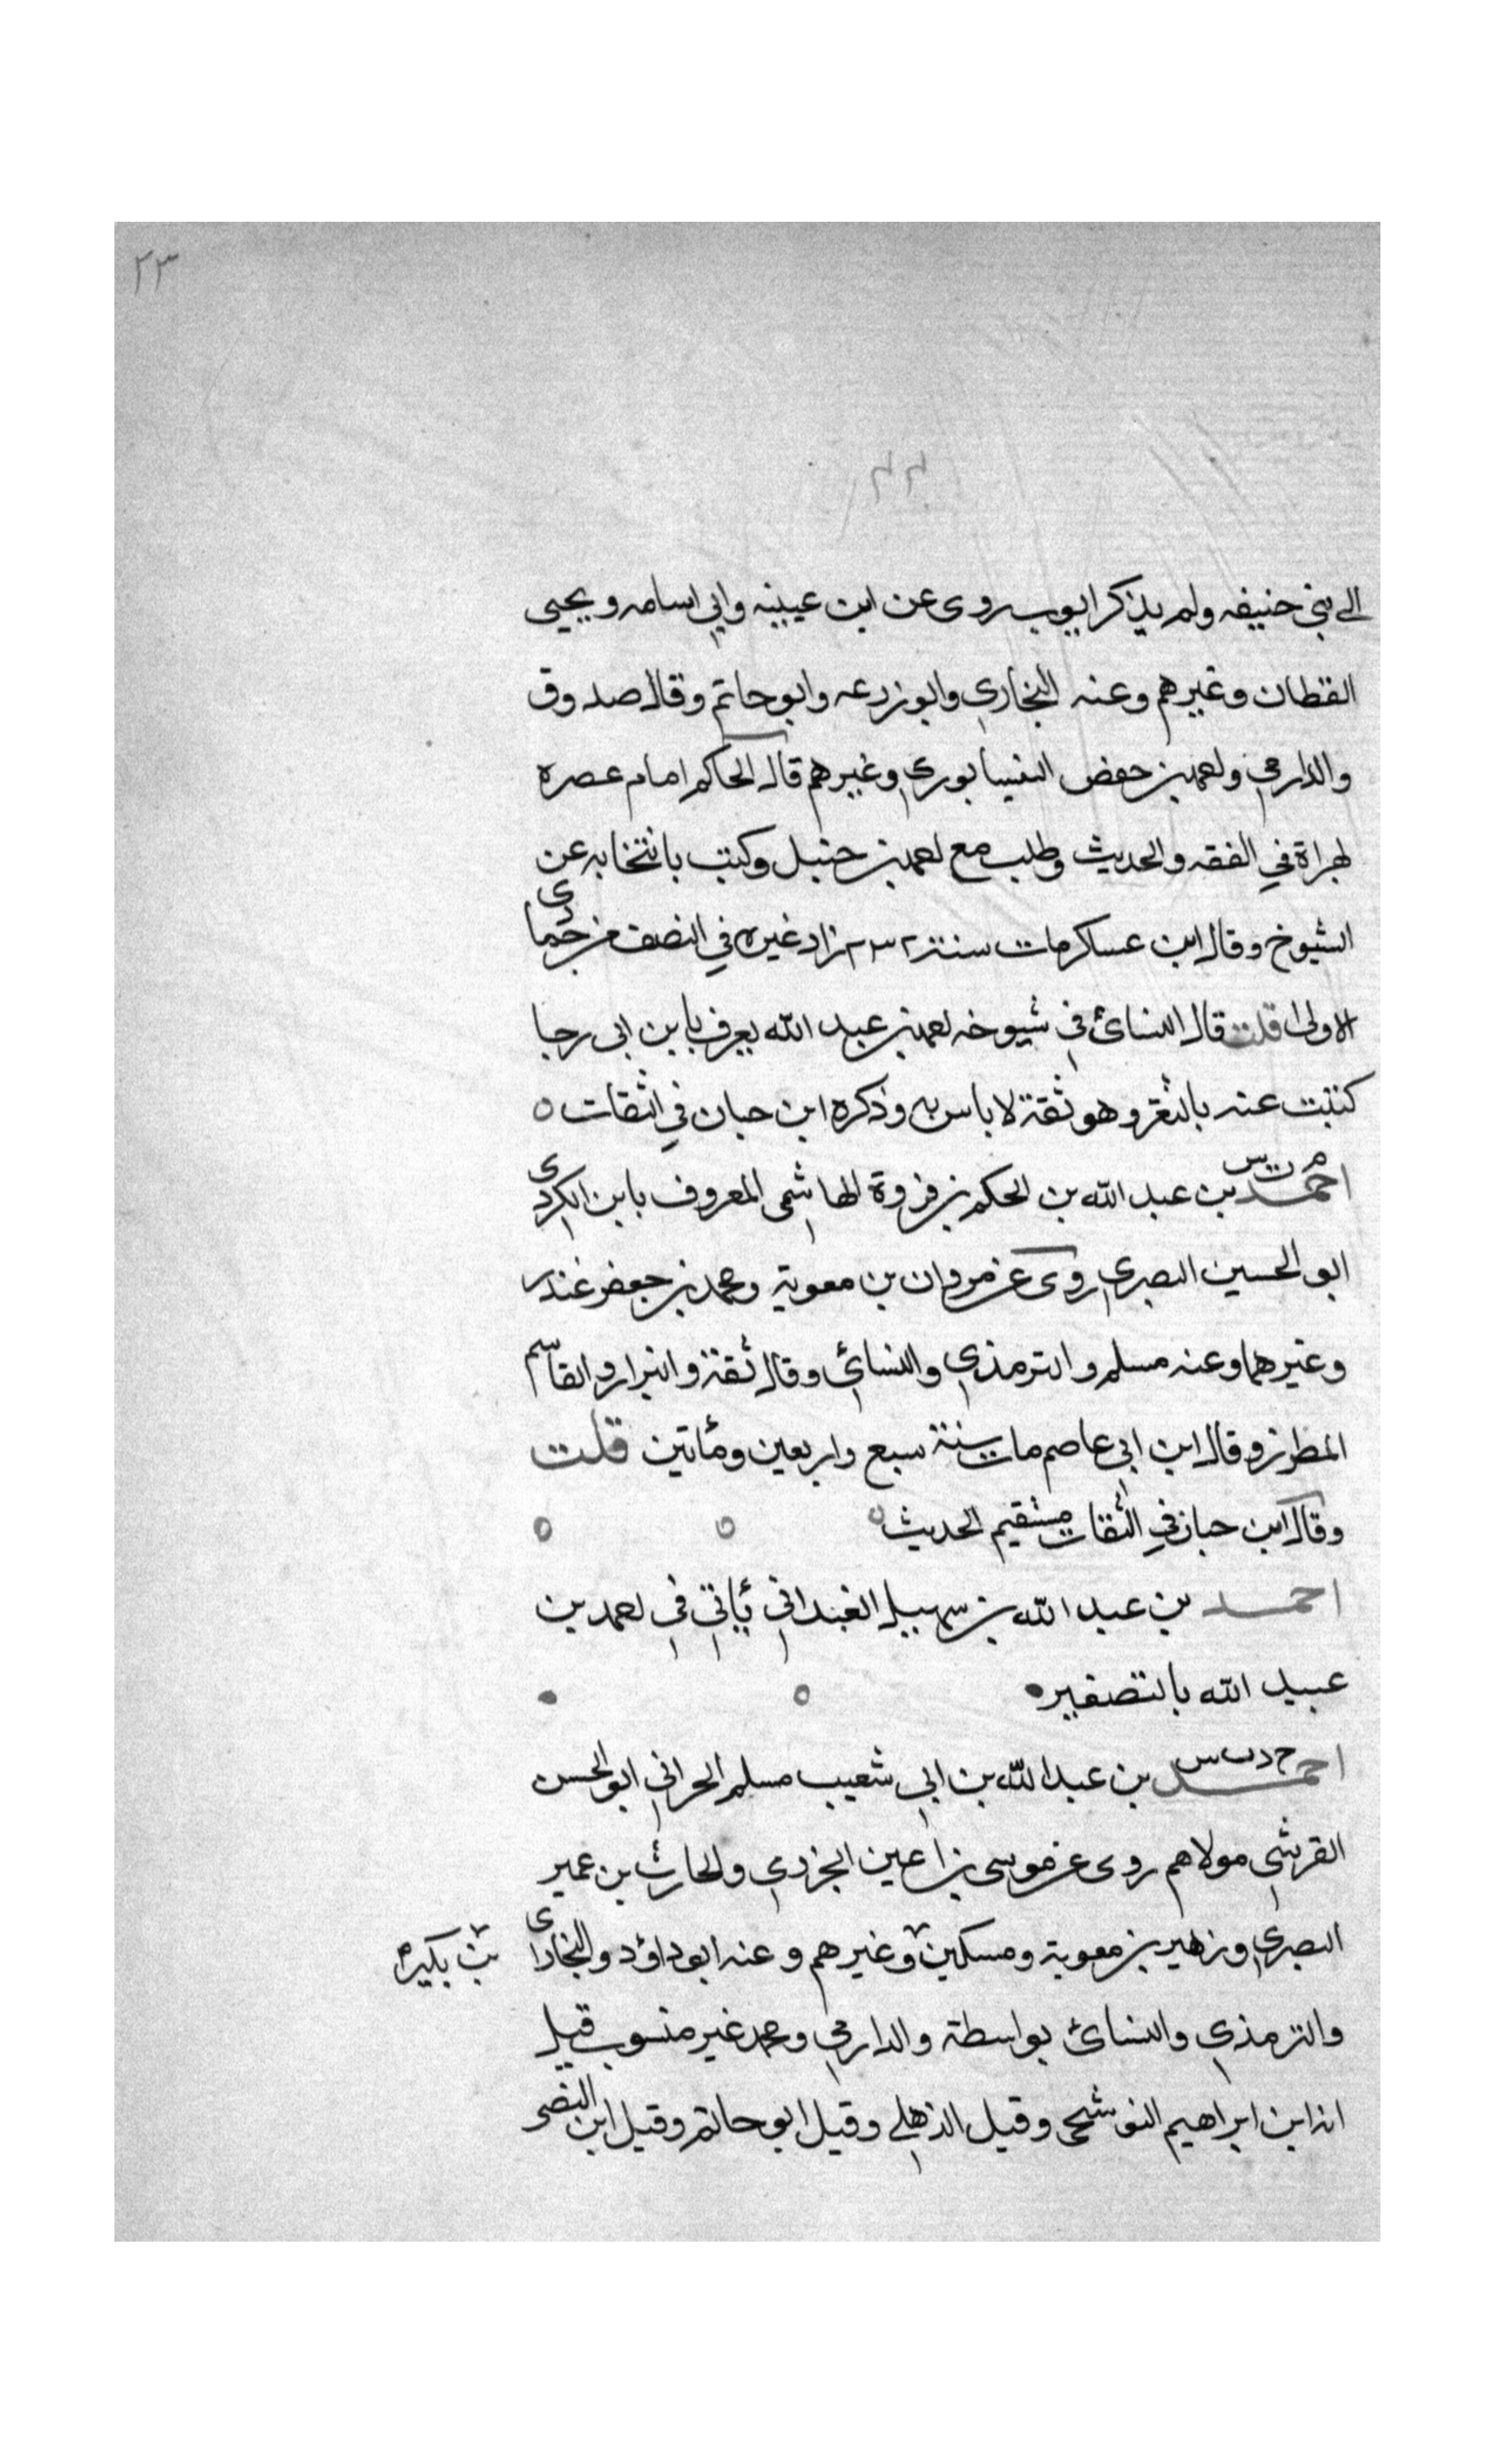 ٢٣
٢٣
الى بني حنيفه ولم يذكر ايوب روى عن ابن عيينه وابي اسامه ويحيى
القطان وغيرهم وعنه البخاري وابو زرعه وابو حاتم وقال صدوق
والدارمي واحمد بن حفص النيسابوري وغيرهم قال الحاكم امام عصره
بهراة في الفقه والحديث وطلب مع احمد بن حنبل وكتب بانتخابه عن
الشيوخ وقال ابن عساكر مات سنة ٢٣٢ زاد غيره في النصف من جمادى
الاولى قلت قال النسائ في شيوخه احمد بن عبد الله يعرف بابن ابى رجا
كتبت عنه بالثغر وهو ثقة لا باس به وذكره ابن حبان في الثقات ه
م ت س
احمد بن عبد الله بن الحكم بن فروة الهاشمى المعروف بابن الكردى
ابو الحسين البصري روى عن مروان بن معوية ومحمد بن جعفر غندر
وغيرهما وعنه مسلم والترمذي والنسائي وقال ثقة والبزار والقاسم
المطرز وقال ابن ابي عاصم مات سنة سبع واربعين ومأتين قلت
وقال ابن حبان في الثقات مستقيم الحديث ه ه ه
احمد بن عبد الله بن سهيل الغداني يأتي في احمد بن
عبيد الله بالتصغير
خ د ت س
احمد بن عبد الله بن ابي شعيب مسلم الحراني ابو الحسن
القرشي مولاهم روى عن موسى بن اعين الجزري والحارث بن عمير
البصري وزهير بن معوية ومسكين وغيرهم وعنه ابو داؤد والبخارى
بن بكير
والترمذي والنسائ بواسطة والدارمي ومحمد غير منسوب قيل
انه ابن ابراهيم البوشنجى وقيل الذهلي وقيل ابو حاتم وقيل ابن النضر